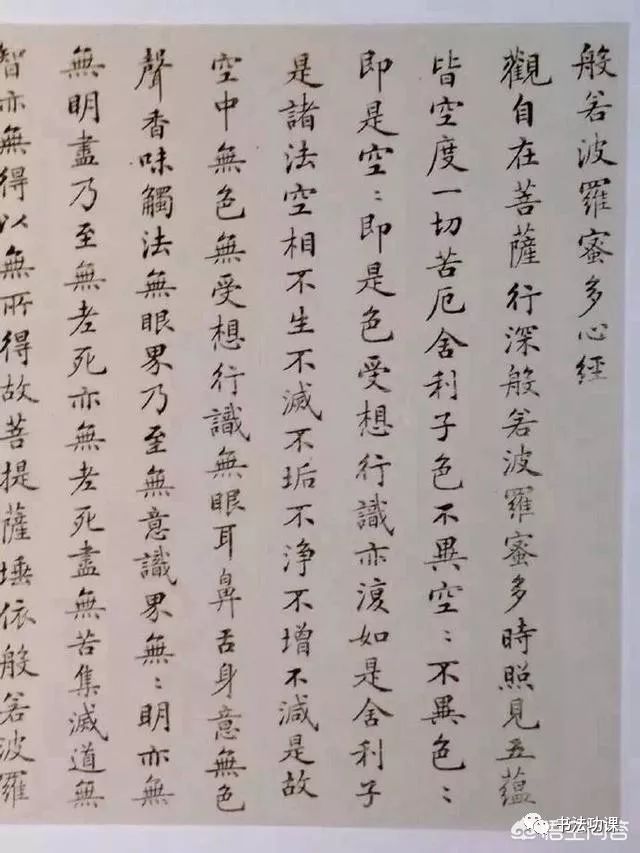 般若波羅蜜多心經
觀自在菩薩行深般若波羅蜜多時照見五蘊
皆空度一切苦厄舍利子色不異空〻不異色〻
即是空〻即是色受想行識亦復如是舍利子
是諸法空相不生不滅不垢不浄不增不減是故
空中無色無受想行識無眼耳鼻舌身意無色
聲香味觸法無眼界乃至無意識界無〻明亦無
無明盡乃至無老死亦無老死盡無苦集滅道無
智亦無得以無所得故菩提薩埵依般若波羅
书法功课
悟空问答